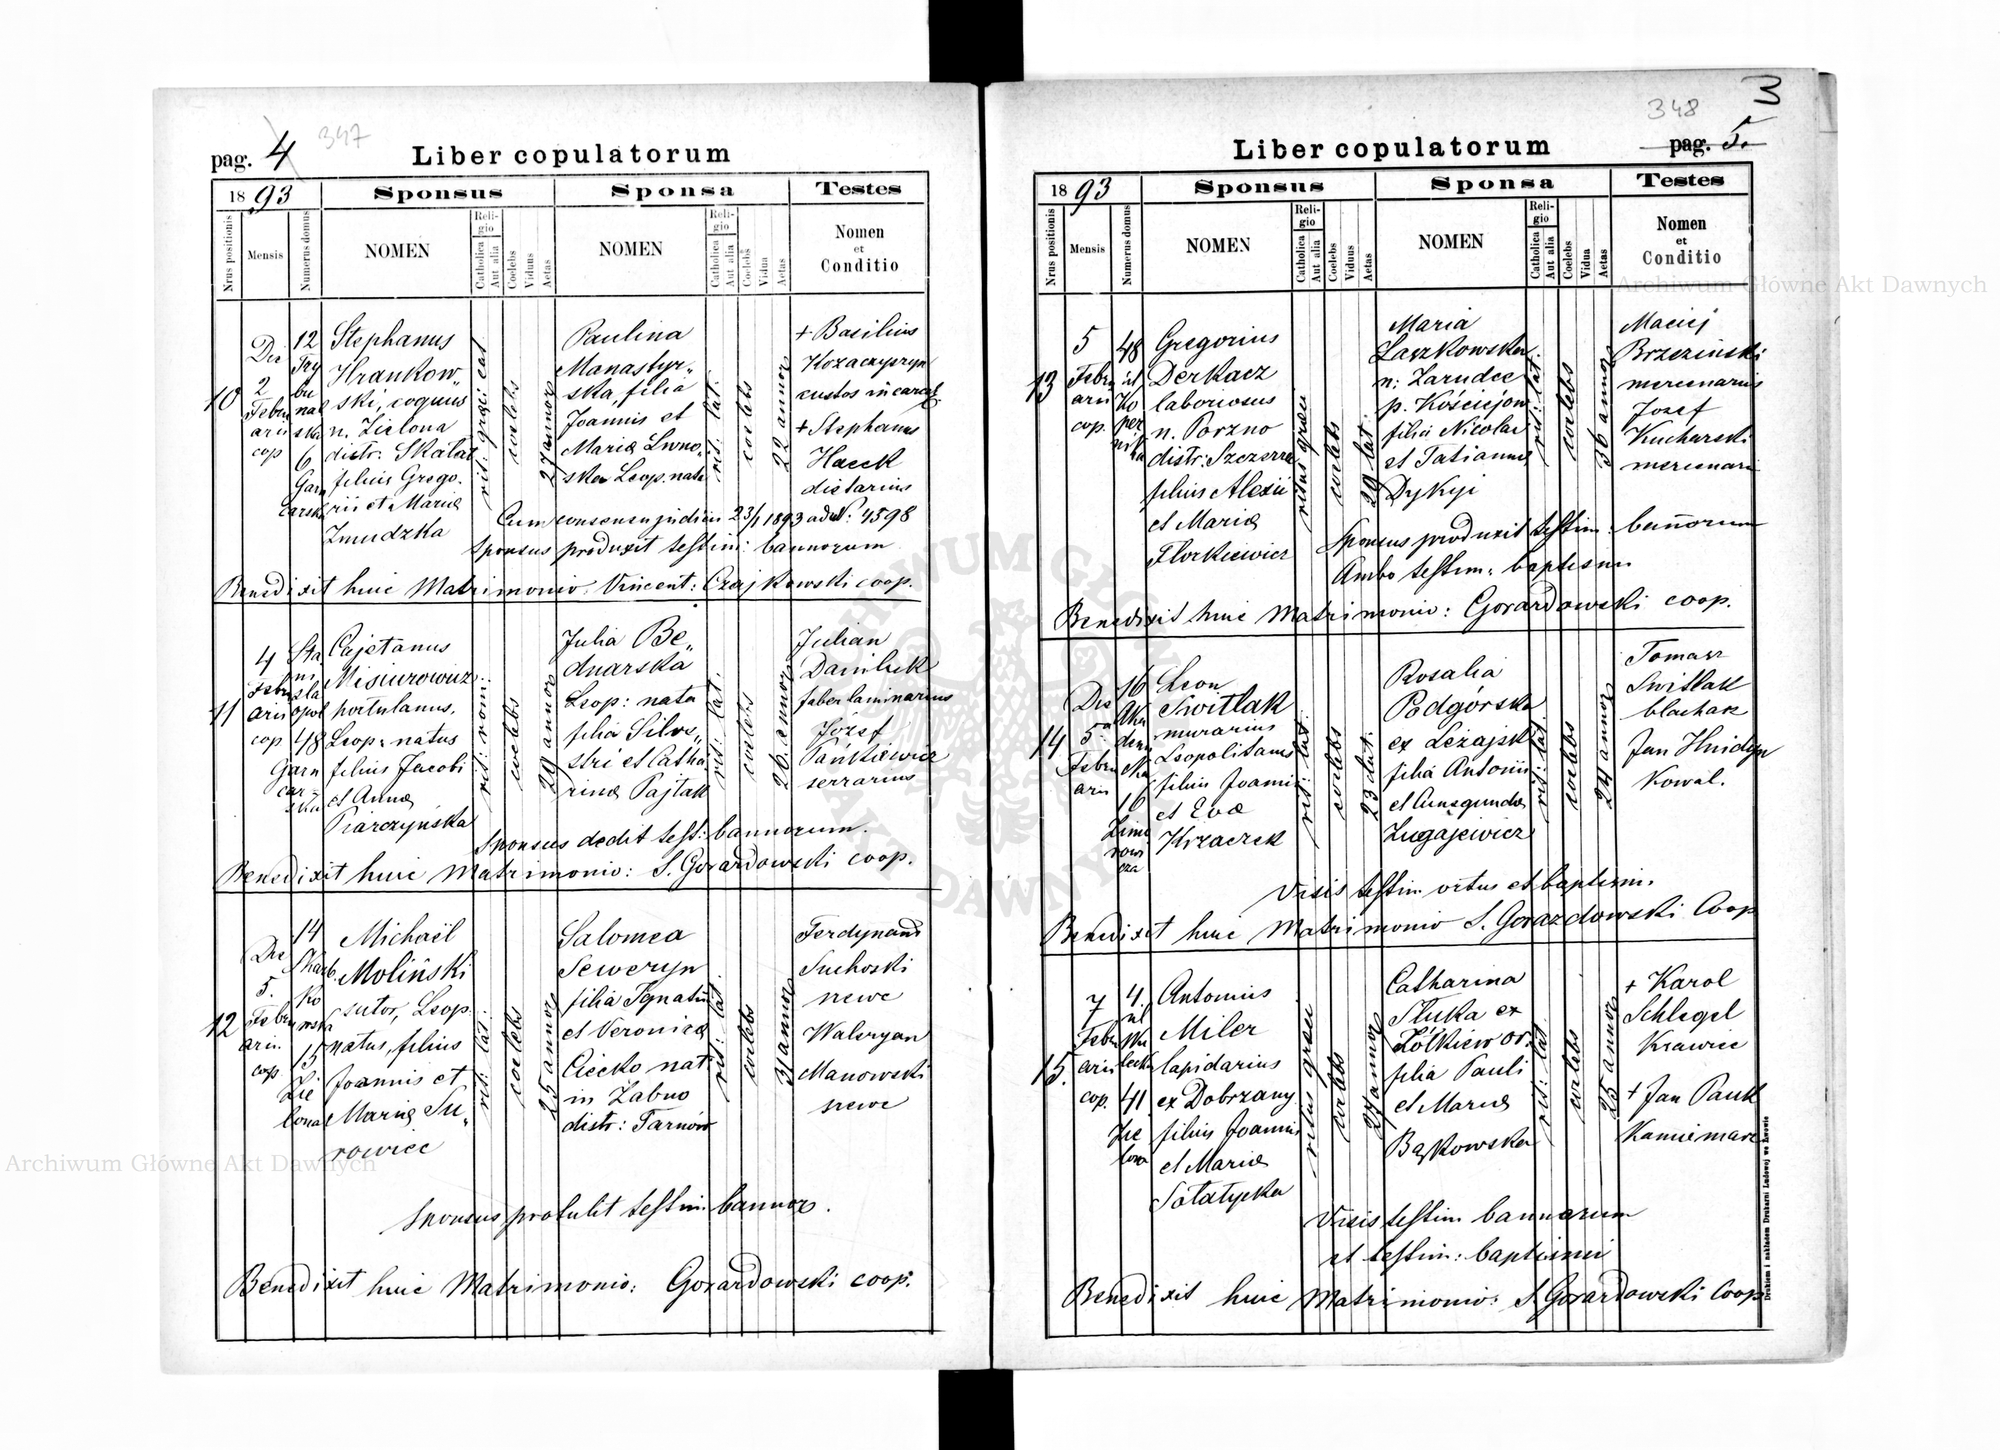 pag. 4 347
Liber copulatorum
18 93
Sponsus
Sponsa
Testes
Nrus positionis
Mensis
Numerus domus
NOMEN
Religio
Catholica
Aut alia
Coelebs
Viduus
Aetas
NOMEN
Religio
Catholica
Aut alia
Coelebs
Vidua
Aetas
Nomen
et
Conditio
10
Die
2
Febru
arii
cop
12
Try
bu
nal
ska
6
Garn
carska
Stephanus
Hrankow„
ski, coquus
n. Zielona
distr: Skałat
filius Grego.
rii et Maria
Zmudzka
rit: graeci cat
coelebs
27 annor
Paulina
Manastyr„
ska, filia
Joannis et
Maria
Leop. nata
rit: lat.
coelebs
22 annor
+ Basilius
Kozaczyszyn
custos in carcel.
+ Stephanus
Hacek
dietarius
Cum consensu judicii 23/1 1893 ad N: 4598
Sponsus produxit testim: bannorum
Benedixit huic Matrimonio. Vincent: Czajkowski coop.
11
4
Febru
arii
cop
Sta
ni
sła
opol
48
Garn
car
ska
Cajetanus
Misiurowicz
hortulanus,
Leop: natus
filius Jacobi
et Anna
Piarczyńska
rit: rom:
coelebs
29 annor
Julia Be„
dnarska
Leop: nata
filia Silve„
stri et Catha
rina Pajtak
rit: lat.
coelebs
26 annor
Julian
Daniluk
faber laminarius
Józef
Pańkiewicz
serrarius
Sponsus dedit test: bannorum.
Benedixit huic Matrimonio: S. Gorazdowski coop.
12
Die
5.
Febru
arii
cop
14
Skarb.
ko
wska
15
Zie
lona
Michaël
Moliński
sutor, Leop.
natus, filius
Joannis et
Maria Su„
rowiec
rit: lat.
coelebs
25 annor
Salomea
Seweryn
filia Ignatii
et Veronica
Ciećko nat
in Żabno
distr: Tarnów
rit: lat
coelebs
31 annor
Ferdynand
Suchoski
szewc
Waleryan
Manowski
szewc
Sponsus protulit testim. bannor.
Benedixit huic Matrimonio: Gorazdowski coop.
3
348
Liber copulatorum
pag. 5.
18 93
Sponsus
Sponsa
Testes
Nrus positionis
Mensis
Numerus domus
NOMEN
Religio
Catholica
Aut alia
Coelebs
Viduus
Aetas
NOMEN
Religio
Catholica
Aut alia
Coelebs
Vidua
Aetas
Nomen
et
Conditio
13
5
Febru
arii
cop.
48
ul
Ko
per
nika
Gregorius
Derkacz
laboriosus
n. Porzno
distr: Szczerze
filius Alexii
et Maria
Florkiewicz
ritus graeci
coelebs
29 lat.
Maria
Laszkowska
n: Zarudce
p. Kościejow
filia Nicolai
et Tatianna
Dykyj
rit: lat.
coelebs
36 annor
Maciej
Brzezinski
mercenarius
Jozef
Kucharski
mercenari
Sponsus produxit testim: bannorum
Ambo testim: baptismi
Benedixit huic Matrimonio: Gorazdowski coop.
14
Die
5.
Febru
arii
16
Aka
demi
cka
16
Zimo
rowi
cza
Leon
Switlak
murarius
Leopolitanus
filius Joannis
et Eva
Krzaczek
rit: lat.
coelebs
23 lat.
Rosalia
Podgórska
ex Leżajsk
filia Antonii
et Cunegunda
Zugajewicz
rit: lat.
coelebs
24 annor
Tomasz
Switlak
blacharz
Jan Hnidyn
Kowal.
Visis testim ortus et baptism.
Benedixit huic Matrimonio S. Gorazdowski Coop
15.
7
Febru
arii
cop.
4.
ul
41
Zie
lona
Antonius
Miler
lapidarius
ex Dobrzany
filius Joannis
et Maria
Sołatycka
ritus graeci
coelebs
27 annor
Catharina
Słuka ex
Żółkiew or.
filia Pauli
et Maria
Bąkowska
rit: lat
coelebs
25 annor
+ Karol
Schlegel
Krawiec
+ Jan Pauk
Kamieniarz
Visis testim bannorum
et testim: baptismi
Benedixit huic Matrimonio: S. Gorazdowski Coop
Drukiem i nakładem Drukarni Ludowej we Lwowie
Archiwum Główne Akt Dawnych
Archiwum Główne Akt Dawnych
ARCHIWUM GŁÓWNE AKT DAWNYCH